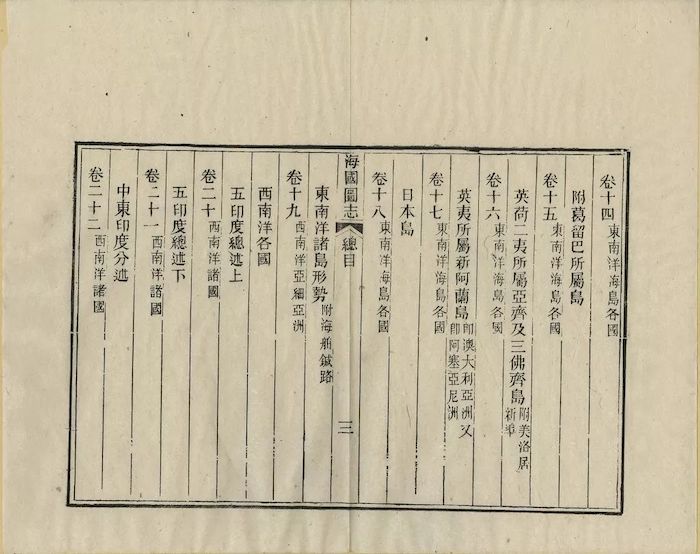 卷十四 東南洋海島各國
附葛留巴所屬島
卷十五 東南洋海島各國
英荷二夷所屬亞齊及三佛齊島 附美洛居
卷十六 東南洋海島各國
英夷所屬新阿蘭島 即澳大利亞洲又
即阿塞亞尼洲
卷十七 東南洋海島各國
日本島
卷十八 東南洋海島各國
海國圖志 總目 三
東南洋諸島形勢 附海舶鍼路
卷十九 西南洋亞細亞洲
西南洋各國
卷二十 西南洋諸國
五印度總述上
卷二十一 西南洋諸國
五印度總述下
中東印度分述
卷二十二 西南洋諸國